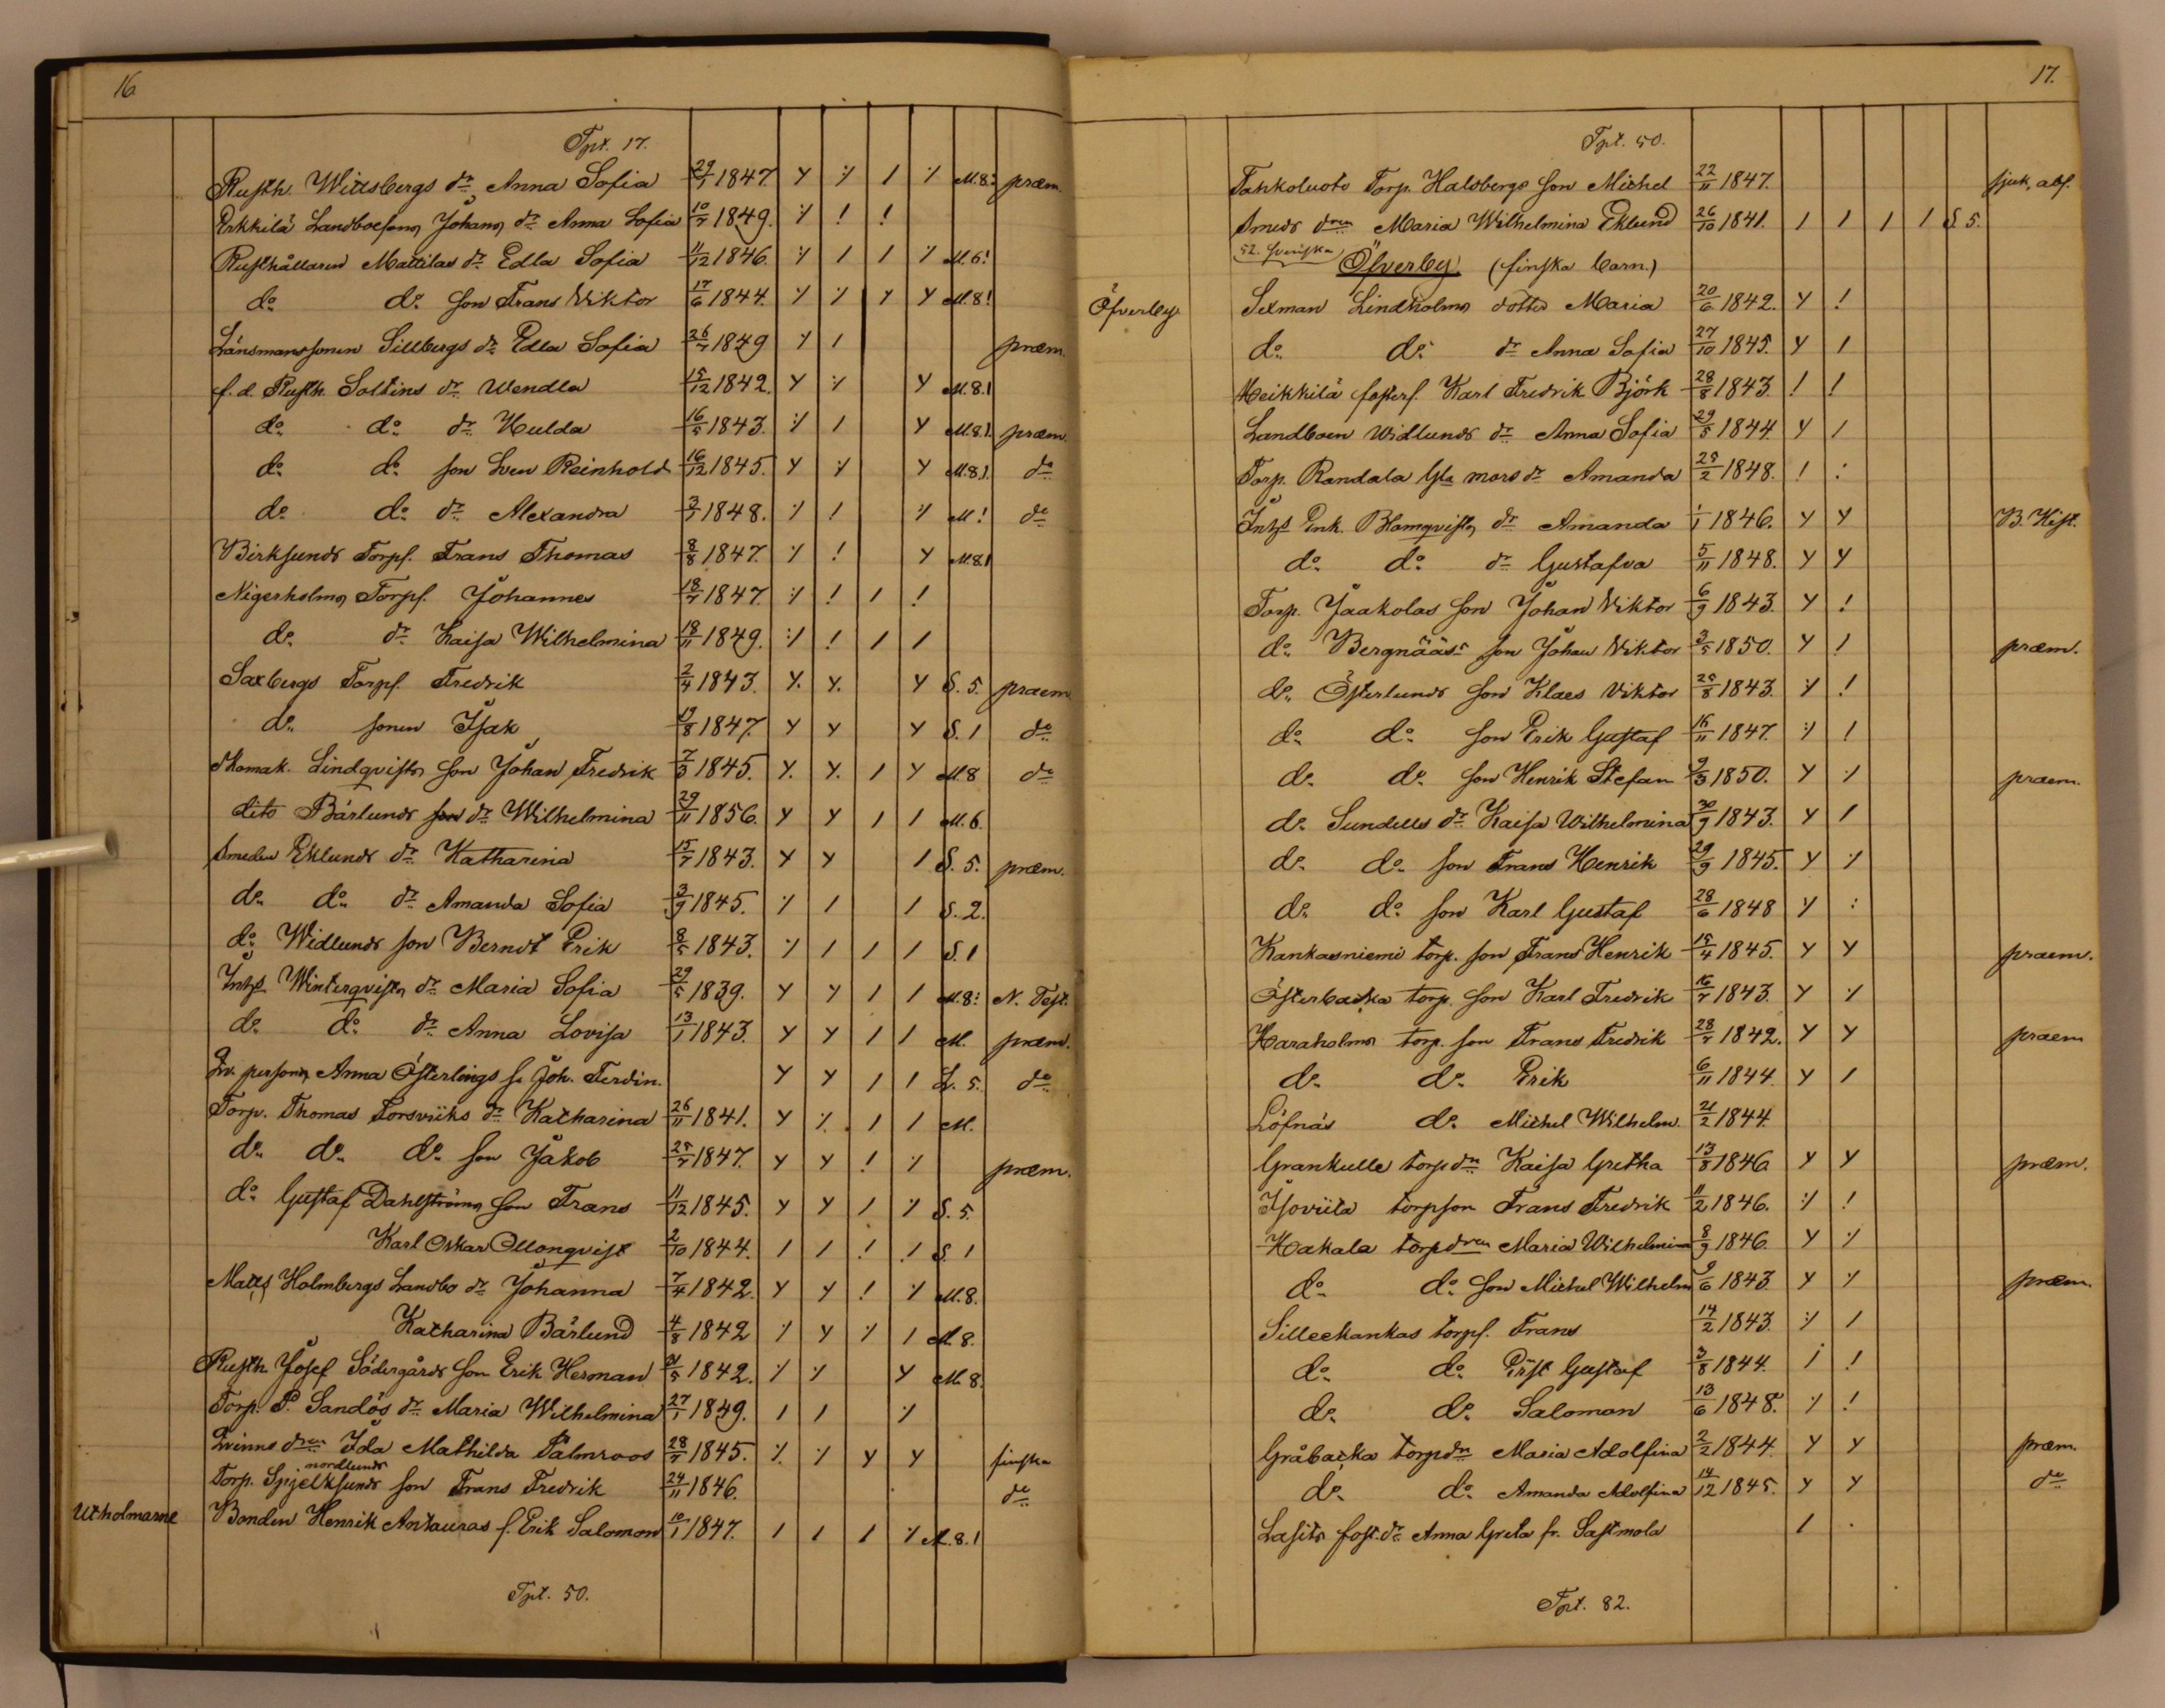 16.
Tpt. 17.
Rusth. Wittsbergs dr Anna Sofia 29/1 1847 Y ·/· / ·/· M.8: præm.
Erkkilä Landboesons Johans dr Anna Sofia 10/7 1849. ·/· ! !
Rusthållaren Mattilas dr Edla Sofia 11/12 1846. ·/· / / ·/· M.6!
do do son Frans Viktor 17/6 1844. ·/· ·/· Y Y M.8!
Länsmanssonen Sillbergs dr Edla Sofia 26/7 1849 ·/· / præm.
f.d. Rusth. Soltins dr Wendla 15/12 1842. Y ·/· Y M.8.!
do do dr Hulda 16/5 1843. ·/· / Y M.8.! præm.
do do son Sven Reinhold 16/12 1845. Y ·/· Y M.8.). do
do do dr Alexandra 3/1 1848. ·/· ! ·/· M! do
Birksunds Torpf. Frans Thomas 8/8 1847. ·/· ! Y M.8!
Nigerholms Torpf. Johannes 18/7 1847. ·/· ! / !
do dr Kaisa Wilhelmina 18/11 1849. ·/· ! / /
Saxbergs Torpf. Fredrik 2/4 1843. Y. Y. Y S. 5. praem.
do sonen Isak 19/8 1847. Y Y Y S. 1 do
Skomak. Lindqvists son Johan Fredrik 7/3 1845. Y. Y. / Y M.8 do
dito Bärlunds dr Wilhelmina 29/11 1856. Y Y / / M.6.
Smeden Eklunds dr Katharina 15/7 1843. Y Y / S. 5. præm.
do do dr Amanda Sofia 3/9 1845. ·/· / / S. 2.
do Widlunds son Berndt Erik 8/5 1843. ·/· / / / S. 1
Inhys Winterqvists dr Maria Sofia 29/5 1839. Y Y / / M.8: N. Test.
do do dr Anna Lovisa 13/1 1843. Y Y / / M. præm.
Qv. persons Anna Österlings s. Joh. Ferdin. Y Y / / L. 5. do
Torp. Thomas Forsviiks dr Katharina 26/11 1841. Y ·/· / / M.
do do do son Jakob 25/7 1847. Y Y ! ·/· præm.
do Gustaf Dahlströms son Frans 11/12 1845. Y Y / ·/· S. 5.
Karl Oskar Ollonqvist 2/10 1844. / / ! / S. 1
Matts Holmbergs Landbo dr Johanna 7/4 1842. Y Y ! ·/· M.8.
Katharina Bärlund 4/8 1842 ·/· Y ·/· / M. 8.
Rusth. Josef Södergårds son Erik Herman 21/5 1842. ·/· ·/· Y M. 8.
Torp. P. Sandös dr Maria Wilhelmina 27/1 1849. / / ·/·
Qvinns dren Ida Mathilda Palmroos 28/7 1845. ·/· ·/· Y Y finska
nordlunds
Torp. Spjelksunds son Frans Fredrik 24/11 1846. do
Utholmarne Bonden Henrik Antauras s. Erik Salomon 10/1 1847. / / / ·/· M.8.!
Tpt. 50.
17.
Tpt. 50.
Tahkoluoto Torp. Halsbergs son Michel 22/11 1847. sjuk, abs.
Smeds dren Maria Wilhelmina Eklund 26/10 1841. / / / / S 5.
52. svenska Öfverby (finska barn.)
Öfverby Sexman Lindholms dotter Maria 20/6 1842. Y !
do do dr Anna Sofia 27/10 1845. Y /
Heikkilä fosters. Karl Fredrik Björk 28/8 1843. ! !
Landboen Widlunds dr Anna Sofia 29/5 1844. Y /
Torp. Randala Gla mors dr Amanda 29/2 1848. ! :
Inhys Enk. Blomqvists dr Amanda 1/1 1846. Y Y B. Hist.
do do dr Gustafva 5/11 1848. Y Y
Torp. Jaakolas son Johan Viktor 6/9 1843. Y !
do Bergnääs son Johan Viktor 3/5 1850. Y / præm.
do Österlunds son Klaes Viktor 25/8 1843. ·/· !
do do son Erik Gustaf 16/11 1847. ·/· !
do do son Henrik Stefan 9/3 1850. Y ·/· præm.
do Sundells dr Kaisa Wilhelmina 30/9 1843. Y /
do do son Frans Henrik 29/9 1845. Y ·/·
do do son Karl Gustaf 28/6 1848 Y :
Kankasniemi torp. son Frans Henrik 15/4 1845. Y Y praem.
Österbacka torp. son Karl Fredrik 16/7 1843. Y ·/·
Haraholms torp. son Frans Fredrik 28/7 1842. Y Y praem
do do Erik 6/11 1844. Y /
Löfnäs do Michel Wilhelm. 21/2 1844.
Grankulle torpdr Kaisa Gretha 13/8 1846 Y Y præm.
Isoviita torpson Frans Fredrik 11/2 1846. ·/· !
Hakala torpdren Maria Wilhelmina 8/9 1846. Y ·/·
do do son Michel Wilhelm 9/6 1843. Y ·/· præm.
Silleekankas torpf. Frans 14/2 1843. ·/· /
do do Erst Gustaf 3/8 1844. / !
do do Salomon 13/6 1848. ·/· !
Gråbacka torpdr Maria Adolfina 2/2 1844. Y Y præm.
do do Amanda Adolfina 14/12 1845. Y Y do
Lasits fost. dr Anna Greta fr. Sastmola / .
Tpt. 82.